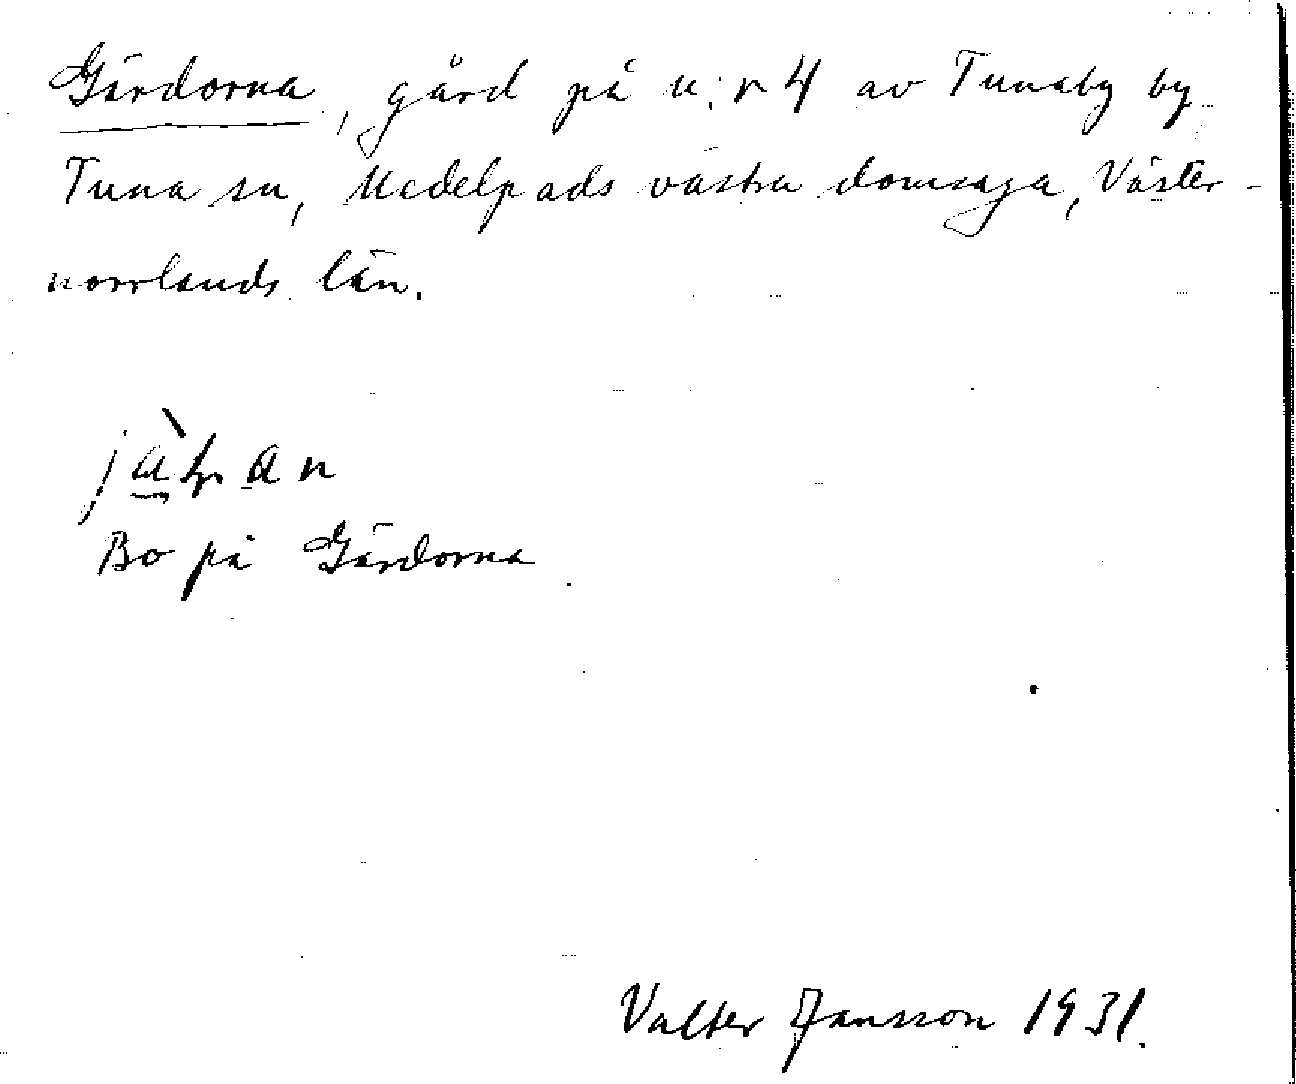 Gärdorna, gård på n:r 4 av Tunaby by
Tuna sn, Medelpads västra domsaga, Väster-
norrlands län.
Bo på Gärdorna
Valter Jansson 1931.